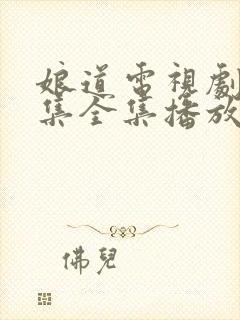 娘道電視劇
集全集播放
佛兒